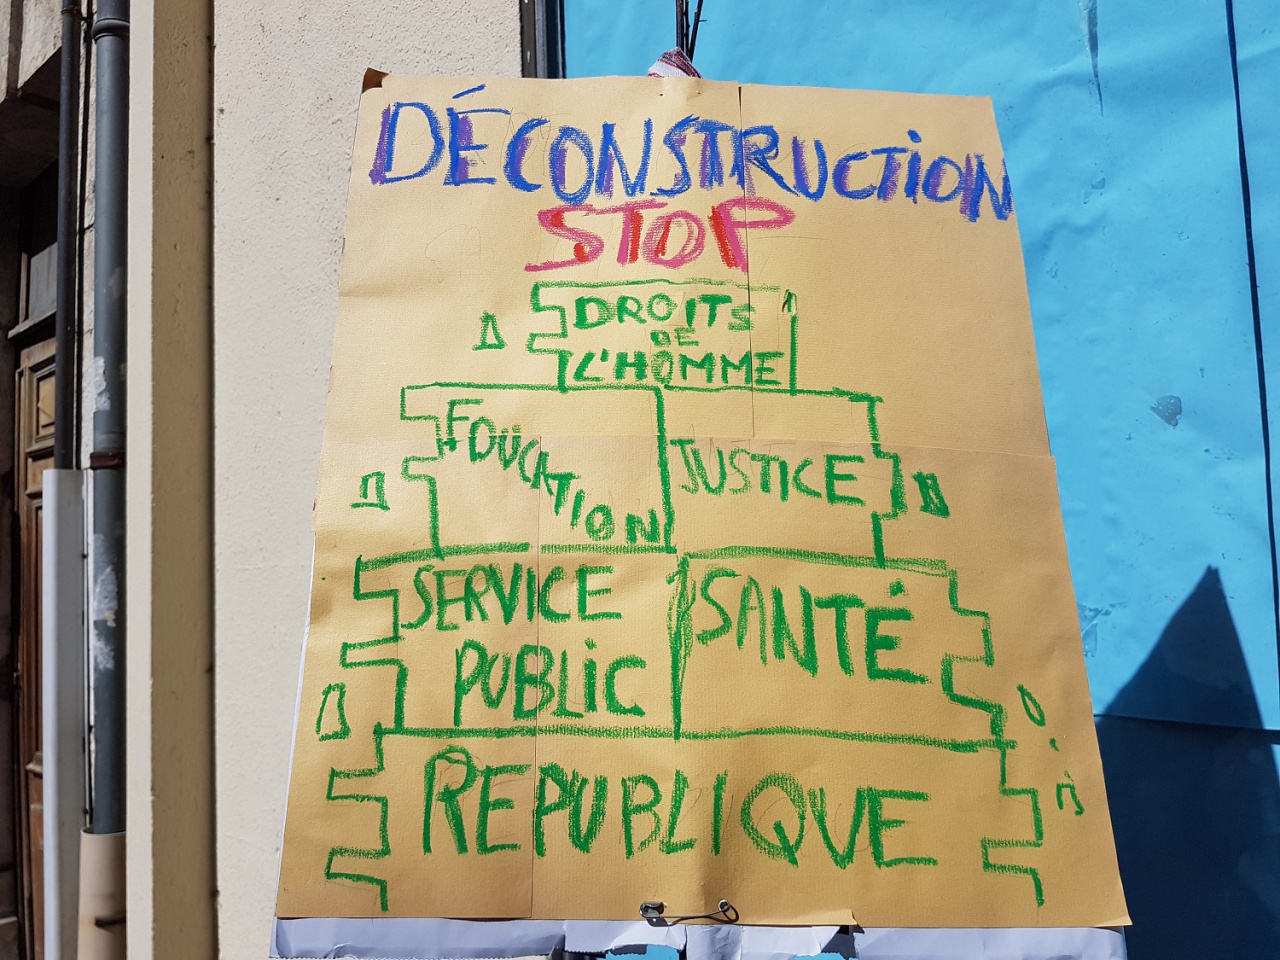 DÉCONSTRUCTION
STOP
DROITS
DE
L'HOMME
EDUCATION
JUSTICE
SERVICE
PUBLIC
SANTÉ
REPUBLIQUE